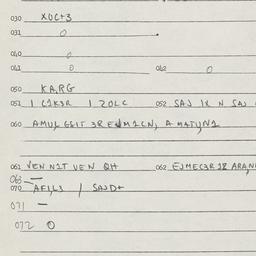 030 XOC+3
031 0
040 0
041 0 042 0
050 KA,RG
051 1 C1K3R 1 20LC 052 SAJ 1X N SAJ
060 AMUL GGIT 3R EJM1CN, A MATUN1
061 VEN N2T VEN QH 062 EJMEC3R 18 ARAN
063 —
070 AFIL3 / SAJD+
071 —
072 0